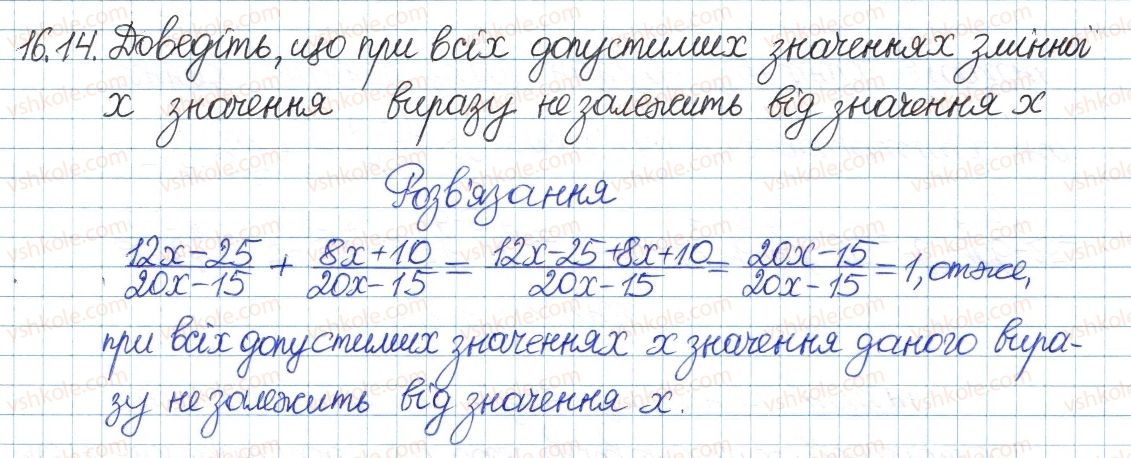 16.14. Доведіть, що при всіх допустимих значеннях змінної
x значення виразу не залежить від значення x
Розв'язання
12x-25/20x-15 + 8x+10/20x-15 = 12x-25+8x+10/20x-15 = 20x-15/20x-15 = 1, отже,
при всіх допустимих значеннях x значення даного вира-
зу не залежить від значення x.